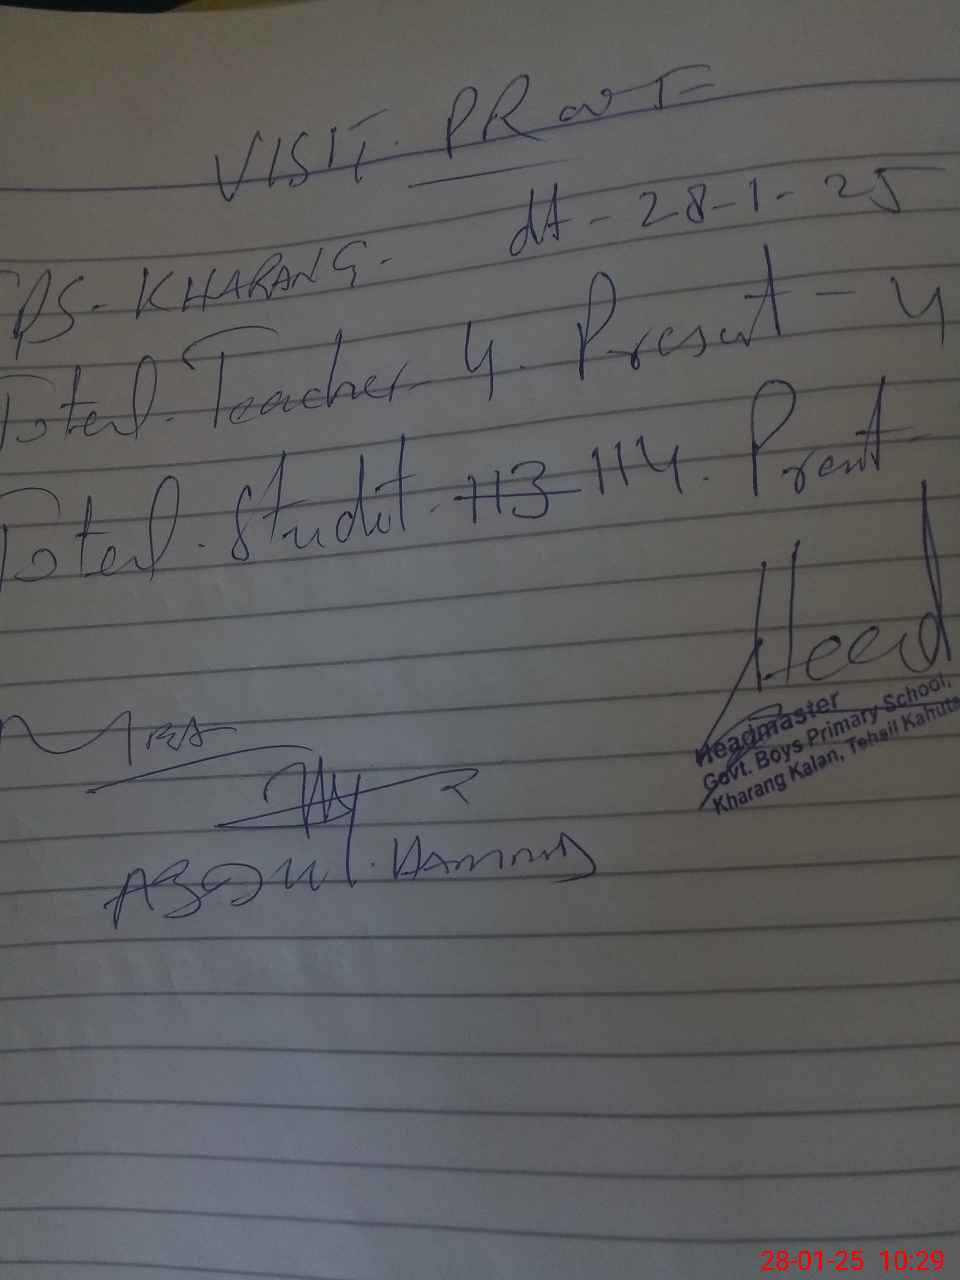 VISIT. PROOF
dt - 28-1-25
PS - KHARANG -
Total. Teacher 4. Present - 4
Total. Studet. 113 114. Prent -
Head
Headmaster
Govt. Boys Primary School,
Kharang Kalan, Tehsil Kahuta
MEA
ABDUL. HAMEED
28-01-25 10:29